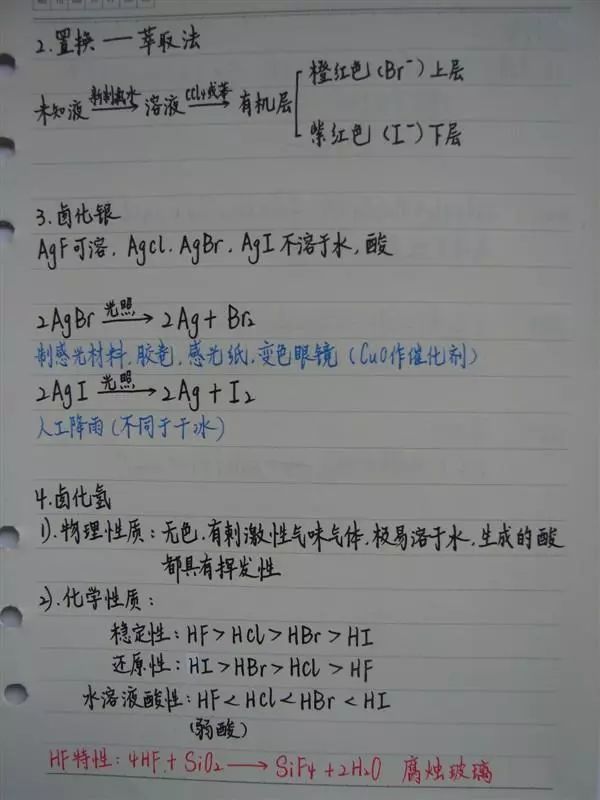 2.置换一萃取法
橙红色(Br⁻)上层
未知液 新制氯水→ 溶液 CCl₄或苯→ 有机层
紫红色(I⁻)下层
3.卤化银
AgF可溶, AgCl. AgBr. AgI不溶于水,酸
2AgBr 光照→ 2Ag+Br₂
制感光材料.胶卷.感光纸.变色眼镜(CuO作催化剂)
2AgI 光照→ 2Ag+I₂
人工降雨(不同于干冰)
4.卤化氢
1).物理性质:无色.有刺激性气味气体.极易溶于水.生成的酸
都具有挥发性
2).化学性质:
稳定性:HF>HCl>HBr>HI
还原性:HI>HBr>HCl>HF
水溶液酸性:HF<HCl<HBr<HI
(弱酸)
HF特性:4HF+SiO₂→SiF₄+2H₂O 腐蚀玻璃